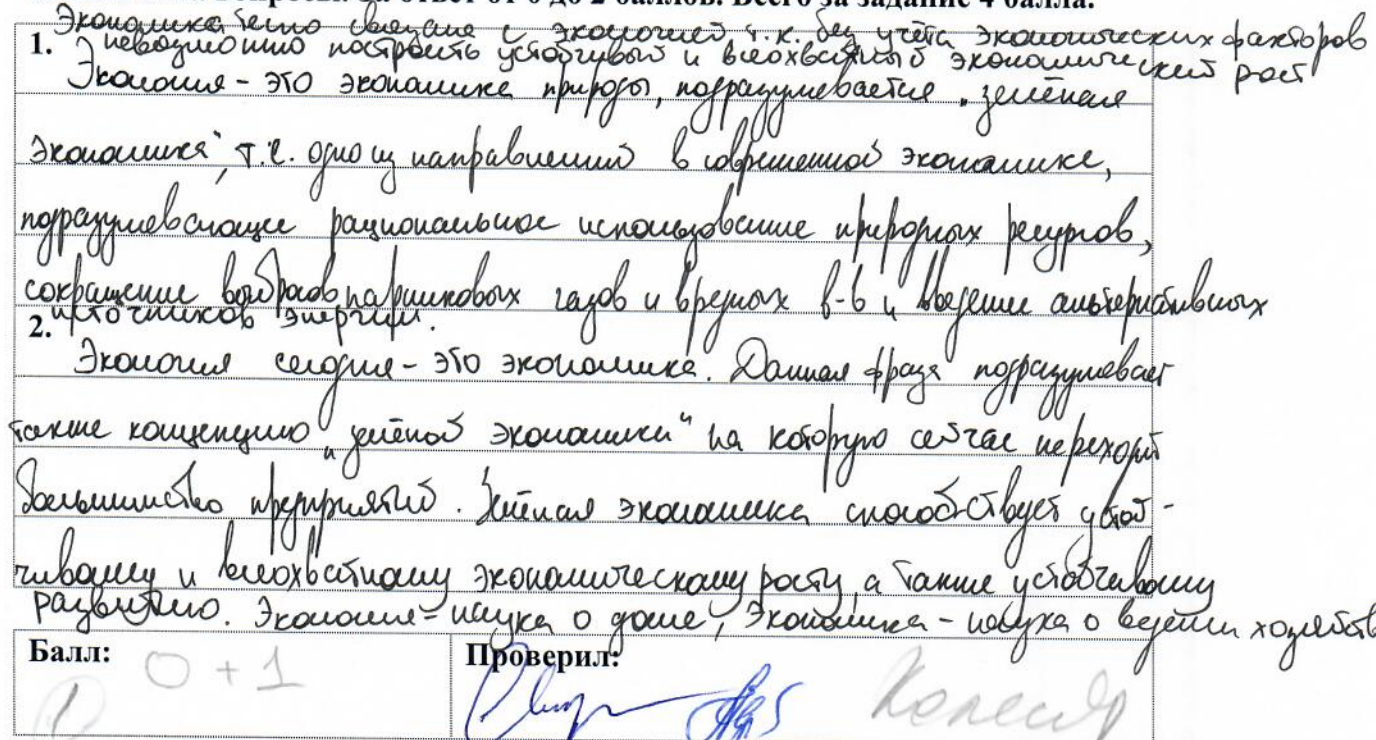 вопроса. За ответ от 0 до 2 баллов. Всего за задание 4 балла.
Экономика тесно связана с экологией т.к. без учёта экономических факторов
1. невозможно построить устойчивый и всеохватный экономический рост
Экология - это экономика природы, подразумевается „зелёная
экономика", т.е. одно из направлений в современной экономике,
подразумевающее рациональное использование природных ресурсов,
сокращение выбросов парниковых газов и вредных в-в и введение альтернативных
источников энергии.
2.
Экология сегодня - это экономика. Данная фраза подразумевает
также концепцию „зелёной экономики" на которую сейчас переходит
большинство предприятий. Зелёная экономика способствует устой-
чивому и всеохватному экономическому росту, а также устойчивому
развитию. Экология - наука о доме, Экономика - наука о ведении хозяйств
Балл: 0 + 1
Проверил:
1